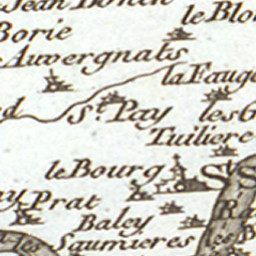 Jean Bonin
le Blo
Borie
Auvergnats
la Fauge
St. Pay
les G
Tuiliere
le Bourg
St. S
Prat
Baley
Saumieres